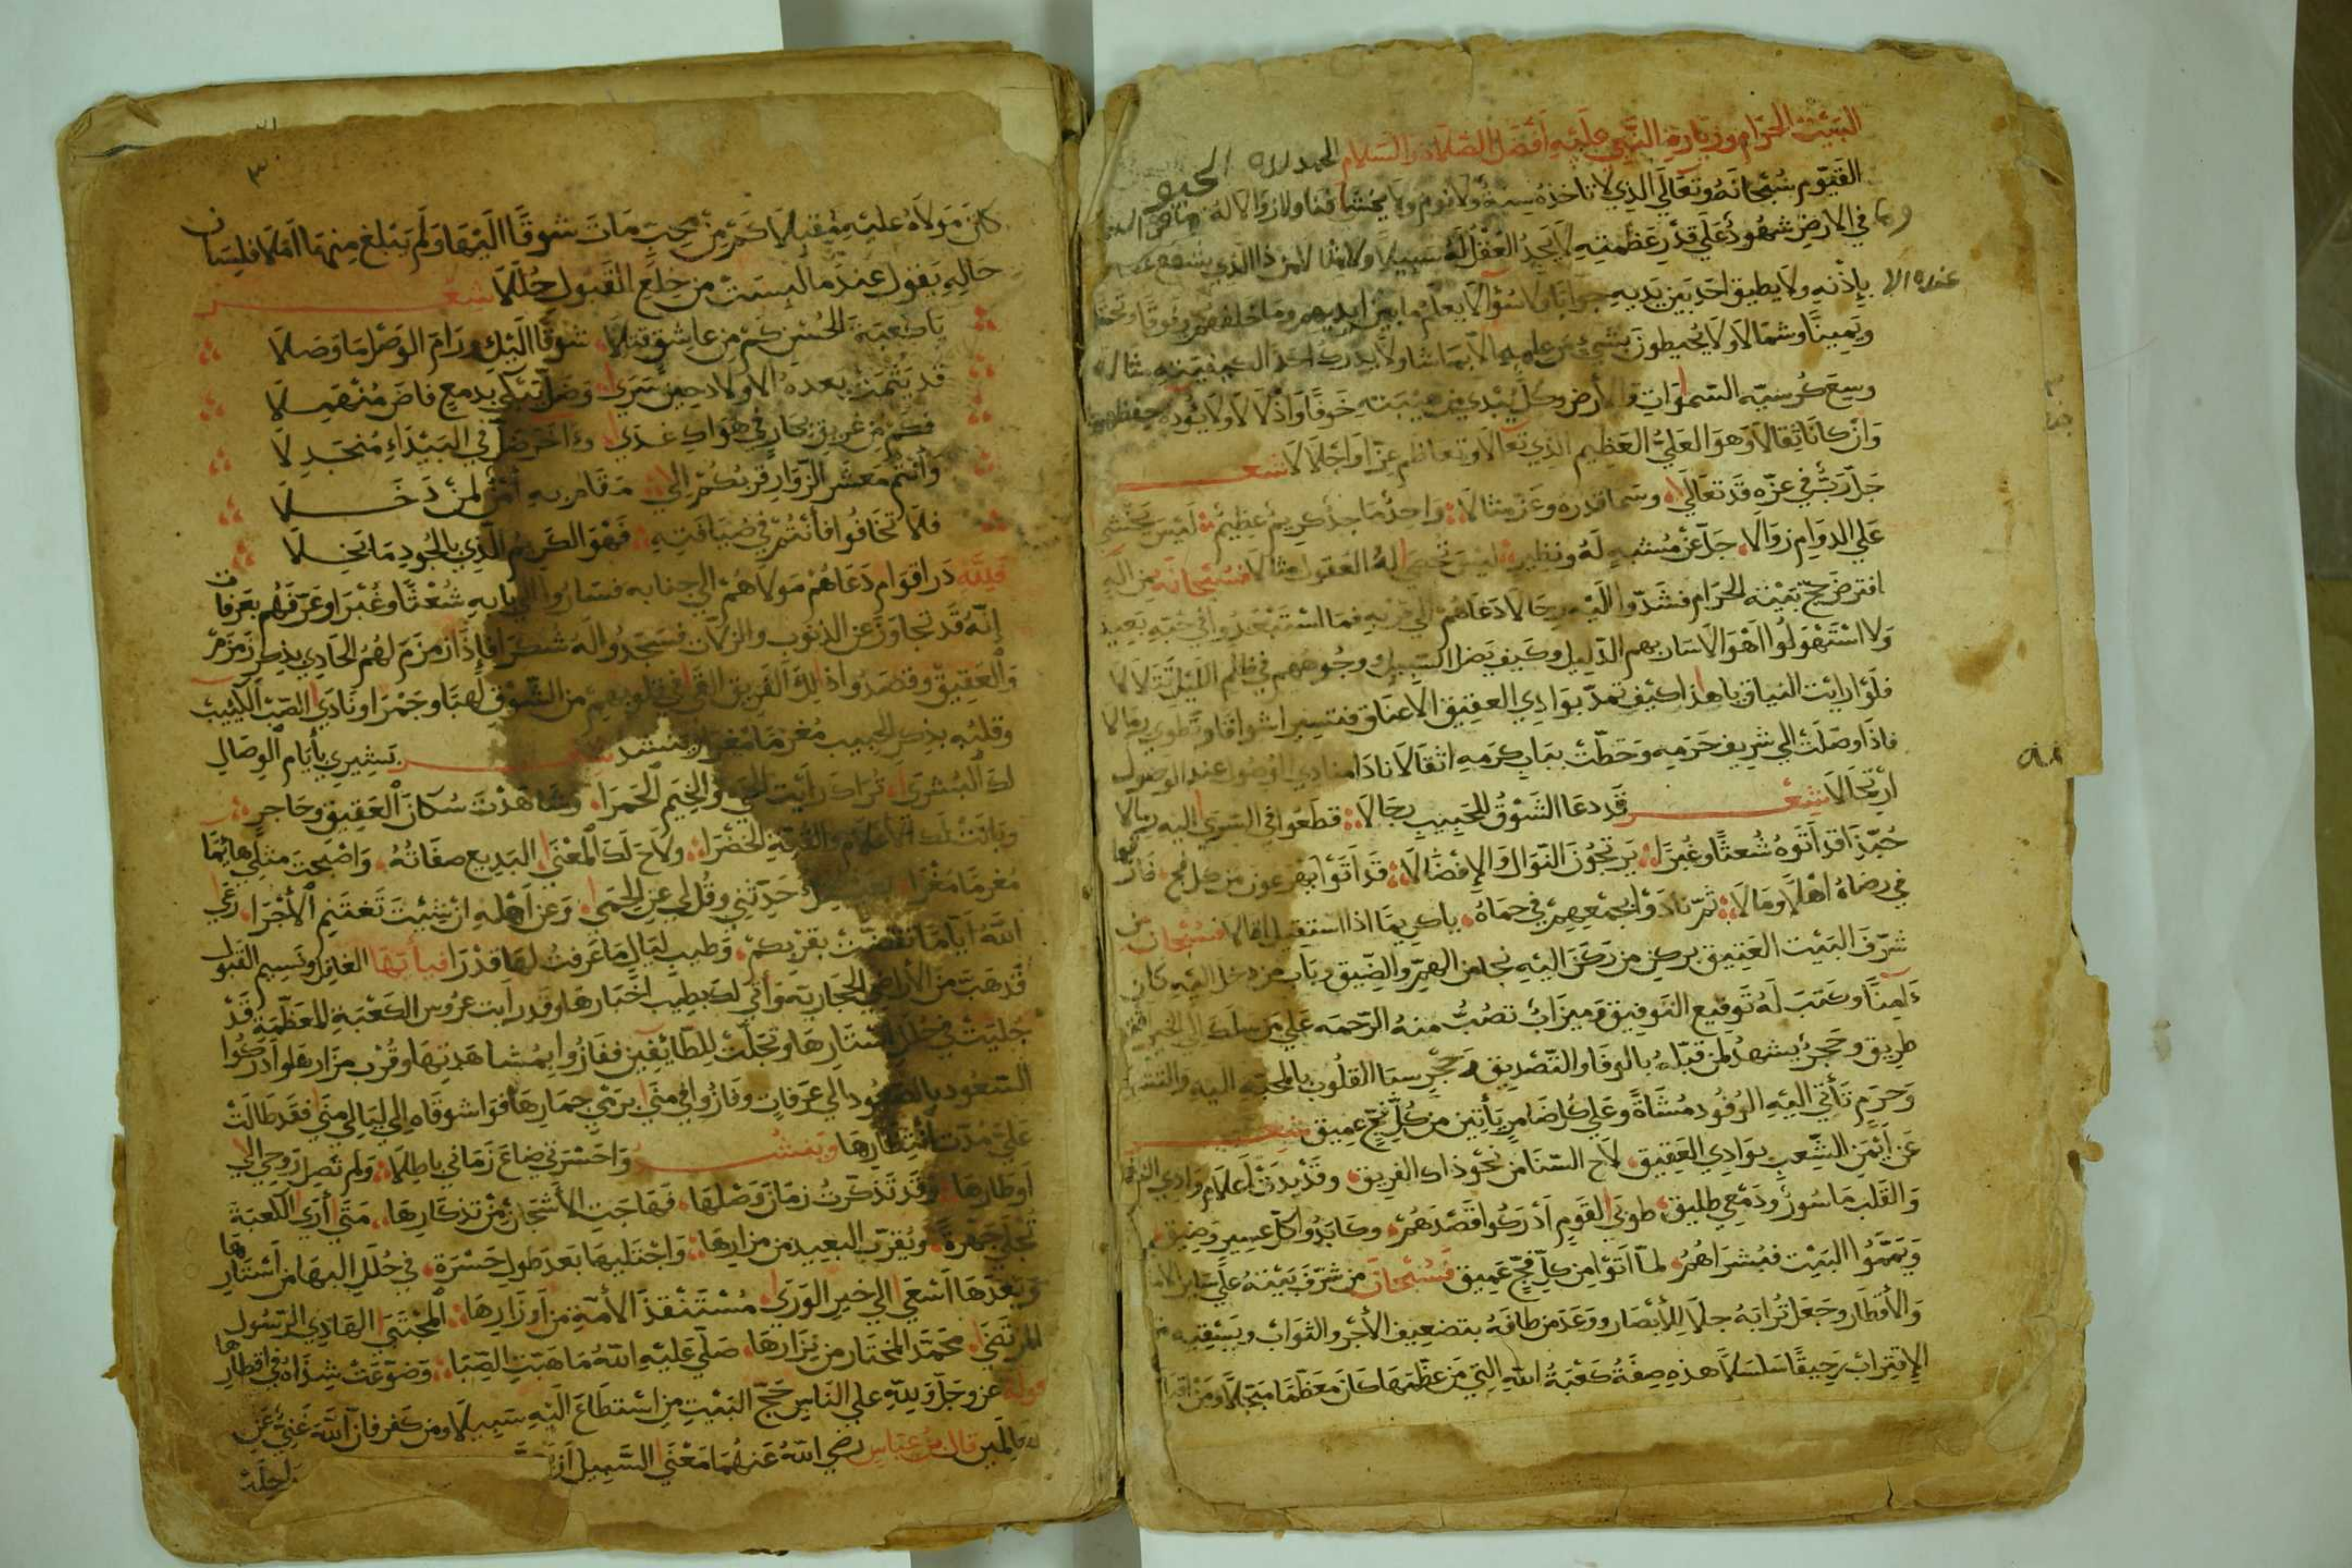 البيت الحرام وزيارة النبي عليه أفضل الصلاة والسلام الحمد لله الحي
القيوم سبحانه وتعالى الذي لا تاخذه سنة ولا نوم ولا يخشا فنا ولا زوالا له
وما في الارض شهود على قدر عظمته لا يجد العقل له سبيلا ولا مثالا من ذا الذي يشفع
عنده الا بإذنه ولا يطيق احد بين يديه جوابا ولا سؤالا يعلم ما بين ايديهم وما خلفهم وفوقا وتحتا
ويمينا وشمالا ولا يحيطون بشيء من علمه الا بما شا ولا يدرك احد الكيفيته مثالا
وسع كرسيه السموات والأرض وكل يبدي من هيبته خوفا واذلالا ولا يئوده حفظهما
وان كانا ثقالا وهو العلي العظيم الذي تعالا وتعاظم عزا واجلالا شعر
جل رب في عزه قد تعالى وسما قدره وعز مثالا واحد ماجد كريم عظيم ليس يخشى
على الدوام زوالا جل عن مشبه له ونظير ليس تحصي له العقول مثالا فسبحانه من اله
افترض حج بيته الحرام فشدوا اليه رحالا دعاهم الى قربه فما استبعدوا في حبه بعيد
ولا استهولوا اهوالا سار بهم الدليل وكيف يضل السبيل ووجوههم في ظلم الليل تتلالا
فلو رايت النياق يا هذا كيف تمد بوادي العقيق الاعناق فتسير اشواقا وتطوي رمالا
فاذا وصلت الى شريف حرمه وحطت بباب كرمه اثقالا نادا منادي الوصول عند الوصول
ارتحالا شعر قد دعا الشوق للحبيب رجالا قطعوا في السرى اليه رمالا
حبذا قد اتوه شعثا وغبرا يرتجون النوال والإفضالا قد أتوا يهرعون من كل فج
في رضاه اهلا ومالا ثم نادوا بجمعهم في حماه يا كريما اذا استقيل اقالا فسبحان من
شرف البيت العتيق بركن من ركن اليه نجا من الهم والضيق وباب من دخل اليه كان
ءامنا وكتب له توقيع التوفيق وميزاب تصب منه الرحمه على من سلك الى الخير
طريق وحجر يشهد لمن قبله بالوفا والتصديق وحجر سبا القلوب بالمحبة اليه
وحرم تأتي اليه الوفود مشاة وعلى كل ضامر يأتين من كل فج عميق شعر
عن أيمن الشعب بوادي العقيق لاح السنا من نحو ذاك الفريق وقد بدت أعلام وادي
والقلب ماسور ودمعي طليق طوبى القوم أدركوا قصدهم وكابدوا كل عسير وضيق
ويمموا البيت فبشراهم لما اتوا من كل فج عميق فسبحان من شرف بيته على ساير
والأقطار وجعل ترابه جلا للأبصار ووعد من طاف به بتضعيف الأجر والثواب ويسقيه
الإقتراب رحيقا سلسلا هذه صفة كعبة الله التي من عظمها كان معظما مبجلا ومن
كان مولاه عليه مقبلا كم من محب مات شوقا اليها ولم يبلغ منها أملا فلسان
حاله يقول عندما البست من خلع القبول حللا شعر
يا كعبة الحسن كم من عاشق قتلا شوقا اليك ورام الوصل ما وصلا
قد يتمت بعده الاولاد حين سرى وضل يبكي بدمع فاض منهملا
فكم من غريق بحار في هواك غدى وءاخر ضل في البيداء منجدلا
وانتم معشر الزوار قربكم الى مقام به أمن لمن دخلا
فلا تخافوا فأنتم في ضيافته فهو الكريم الذي بالجود ما بخلا
فلله در اقوام دعاهم مولاهم الى جنابه فساروا الى بابه شعثا وغبرا وعرفهم بعرفات
إنه قد تجاوز عن الذنوب والزلات فسجدوا له شكرا فإذا زمزم لهم الحادي بذكر زمزم
والعقيق وقصدوا ذلك الفريق القى في قلوبهم من الشوق لهبا وجمرا ونادى الصب الكئيب
وقلبه بذكر الحبيب مغرما مغرا ينشد شعر تبشيري بأيام الوصال
لك البشرى تراك رأيت الحي والخيم الحمرا وشاهدت سكان العقيق وحاجر
وبانت لك الأعلام والقبة الخضرا ولاح لك المعنى البديع صفاته واصبحت مثلي هائما
مغرما مغرا حدثني وقل لي عن الحمى وعن أهله ان شئت تغتنم الأجرا رعى
الله أياما تقضت بقربكم وطيب ليال ما عرفت لها قدرا فيا أيها الغافل ونسيم القبول
قد هبت من الأراضي الحجازية وأتى لك بطيب اخبارها وقد رايت عروس الكعبة المعظمة قد
جليت في حلل استارها وتجلت للطايفين ففازوا بمشاهدتها وقرب مزارها وادركوا
السعود بالصعود الى عرفات وفازوا في منى برمي جمارها فواشوقاه الى ليالي منى فقد طالت
علي مدت انتظارها وينشد واحسرتي ضاع زماني باطلا ولم تصل روحي الى
أوطارها وقد تذكرت زمان وصلها فهاجت الأشجان من تذكارها متى أرى الكعبة
تجلى جهرة ويقرب البعيد من مزارها واجتليها بعد طول حسرة في حلل البها من أستارها
وبعدها أسعى الى خير الورى مستنقذ الأمة من أوزارها المجتبى الهادي الرسول
المرتضى محمد المختار من نزارها صلى عليه الله ما هبت الصبا وضوعت شذاه في اقطارها
قوله عز وجل ولله على الناس حج البيت من استطاع اليه سبيلا ومن كفر فان الله غني عن
العالمين قال بن عباس رضي الله عنهما معنى السبيل أن
راحلة